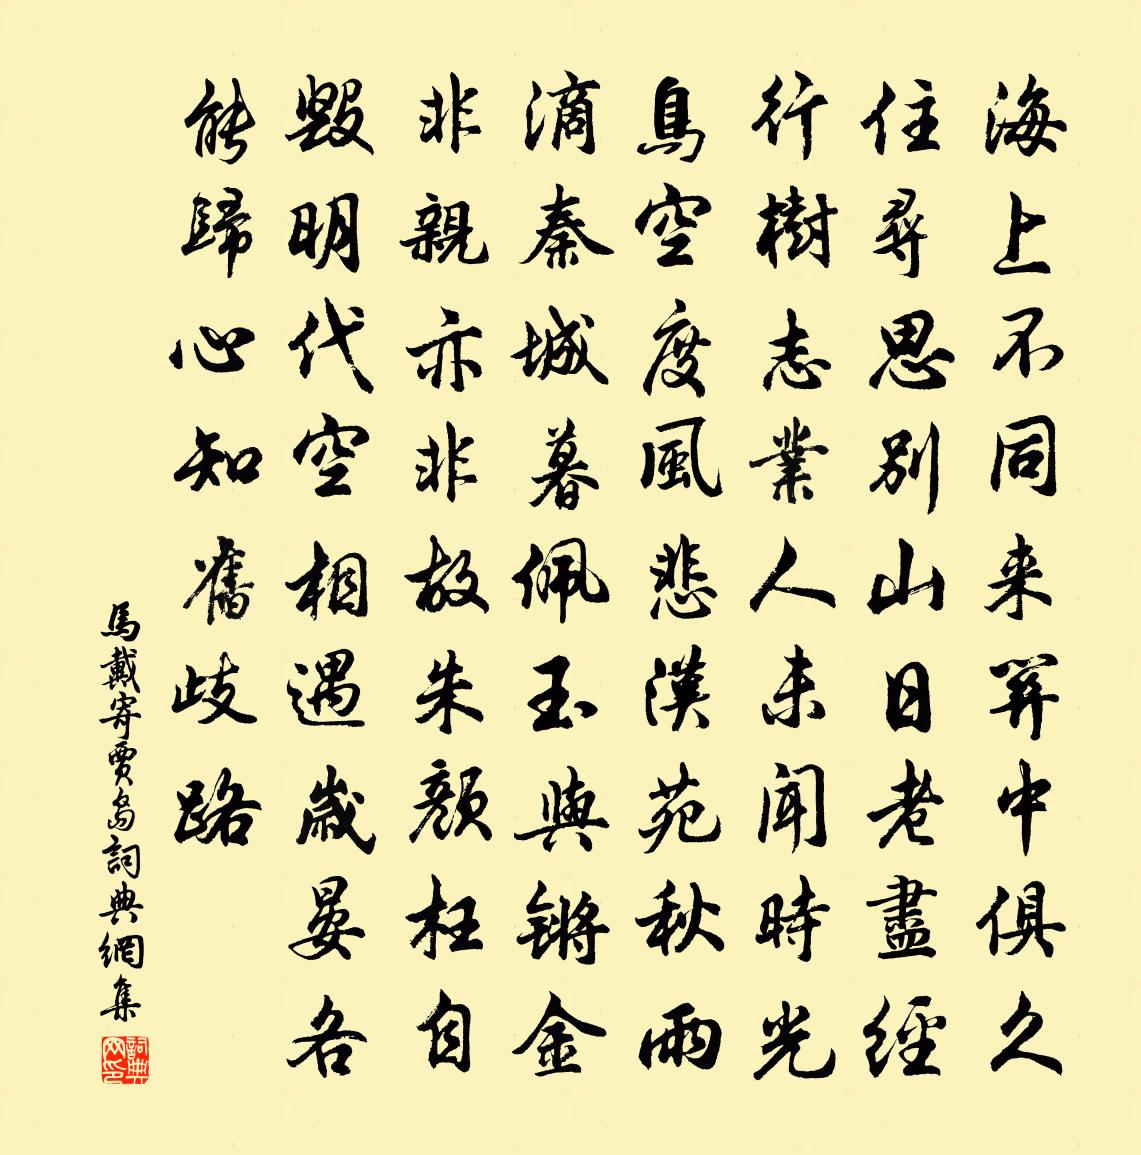 海上不同来關中俱久
住尋思别山日老盡經
行樹志業人未聞時光
鳥空度風悲漢苑秋雨
滴秦城暮佩玉與鏘金
非親亦非故朱顔枉自
毀明代空相遇歲晏各
能歸心知舊歧路
馬戴寄賈島詞典網集